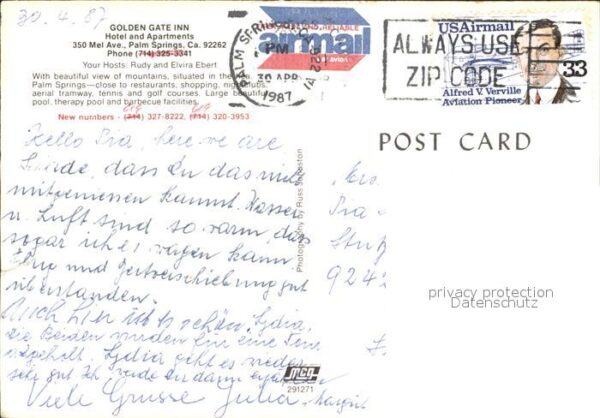 30.4.87
GOLDEN GATE INN
Hotel and Apartments
350 Mel Ave., Palm Springs, Ca. 92262
Phone (714) 325-3341
Your Hosts: Rudy and Elvira Ebert
With beautiful view of mountains, situated in the
Palm Springs—close to restaurants, shopping, nightclubs,
aerial tramway, tennis and golf courses. Large beautiful
pool, therapy pool and barbecue facilities.
619 619
New numbers - (714) 327-8222, (714) 320-3953
airmail
PALM SPRINGS
PM
30 APR
1987
ALWAYS USE
ZIP CODE
USAirmail
33
Alfred V. Verville
Aviation Pioneer
POST CARD
Hello Pia, here we are
dass du das
mitgeniessen kannst. Wasser
u. Luft sind so warm, dass
sogar ich es wagen kann.
Flug und Zeitverschiebung gut
überstanden.
Auch hier ist es schön. Lydia,
die Beiden wurden für eine
Lydia geht es wieder
sehr gut. Ich werde
Viele Grüsse Julia Margrit
Photography by Russ Johnston
Pia
924
privacy protection
Datenschutz
291271